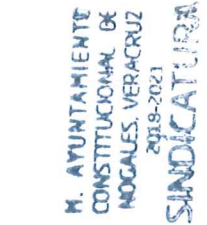 H. AYUNTAMIENTO
CONSTITUCIONAL DE
NOGALES, VERACRUZ
2018-2021
SINDICATURA